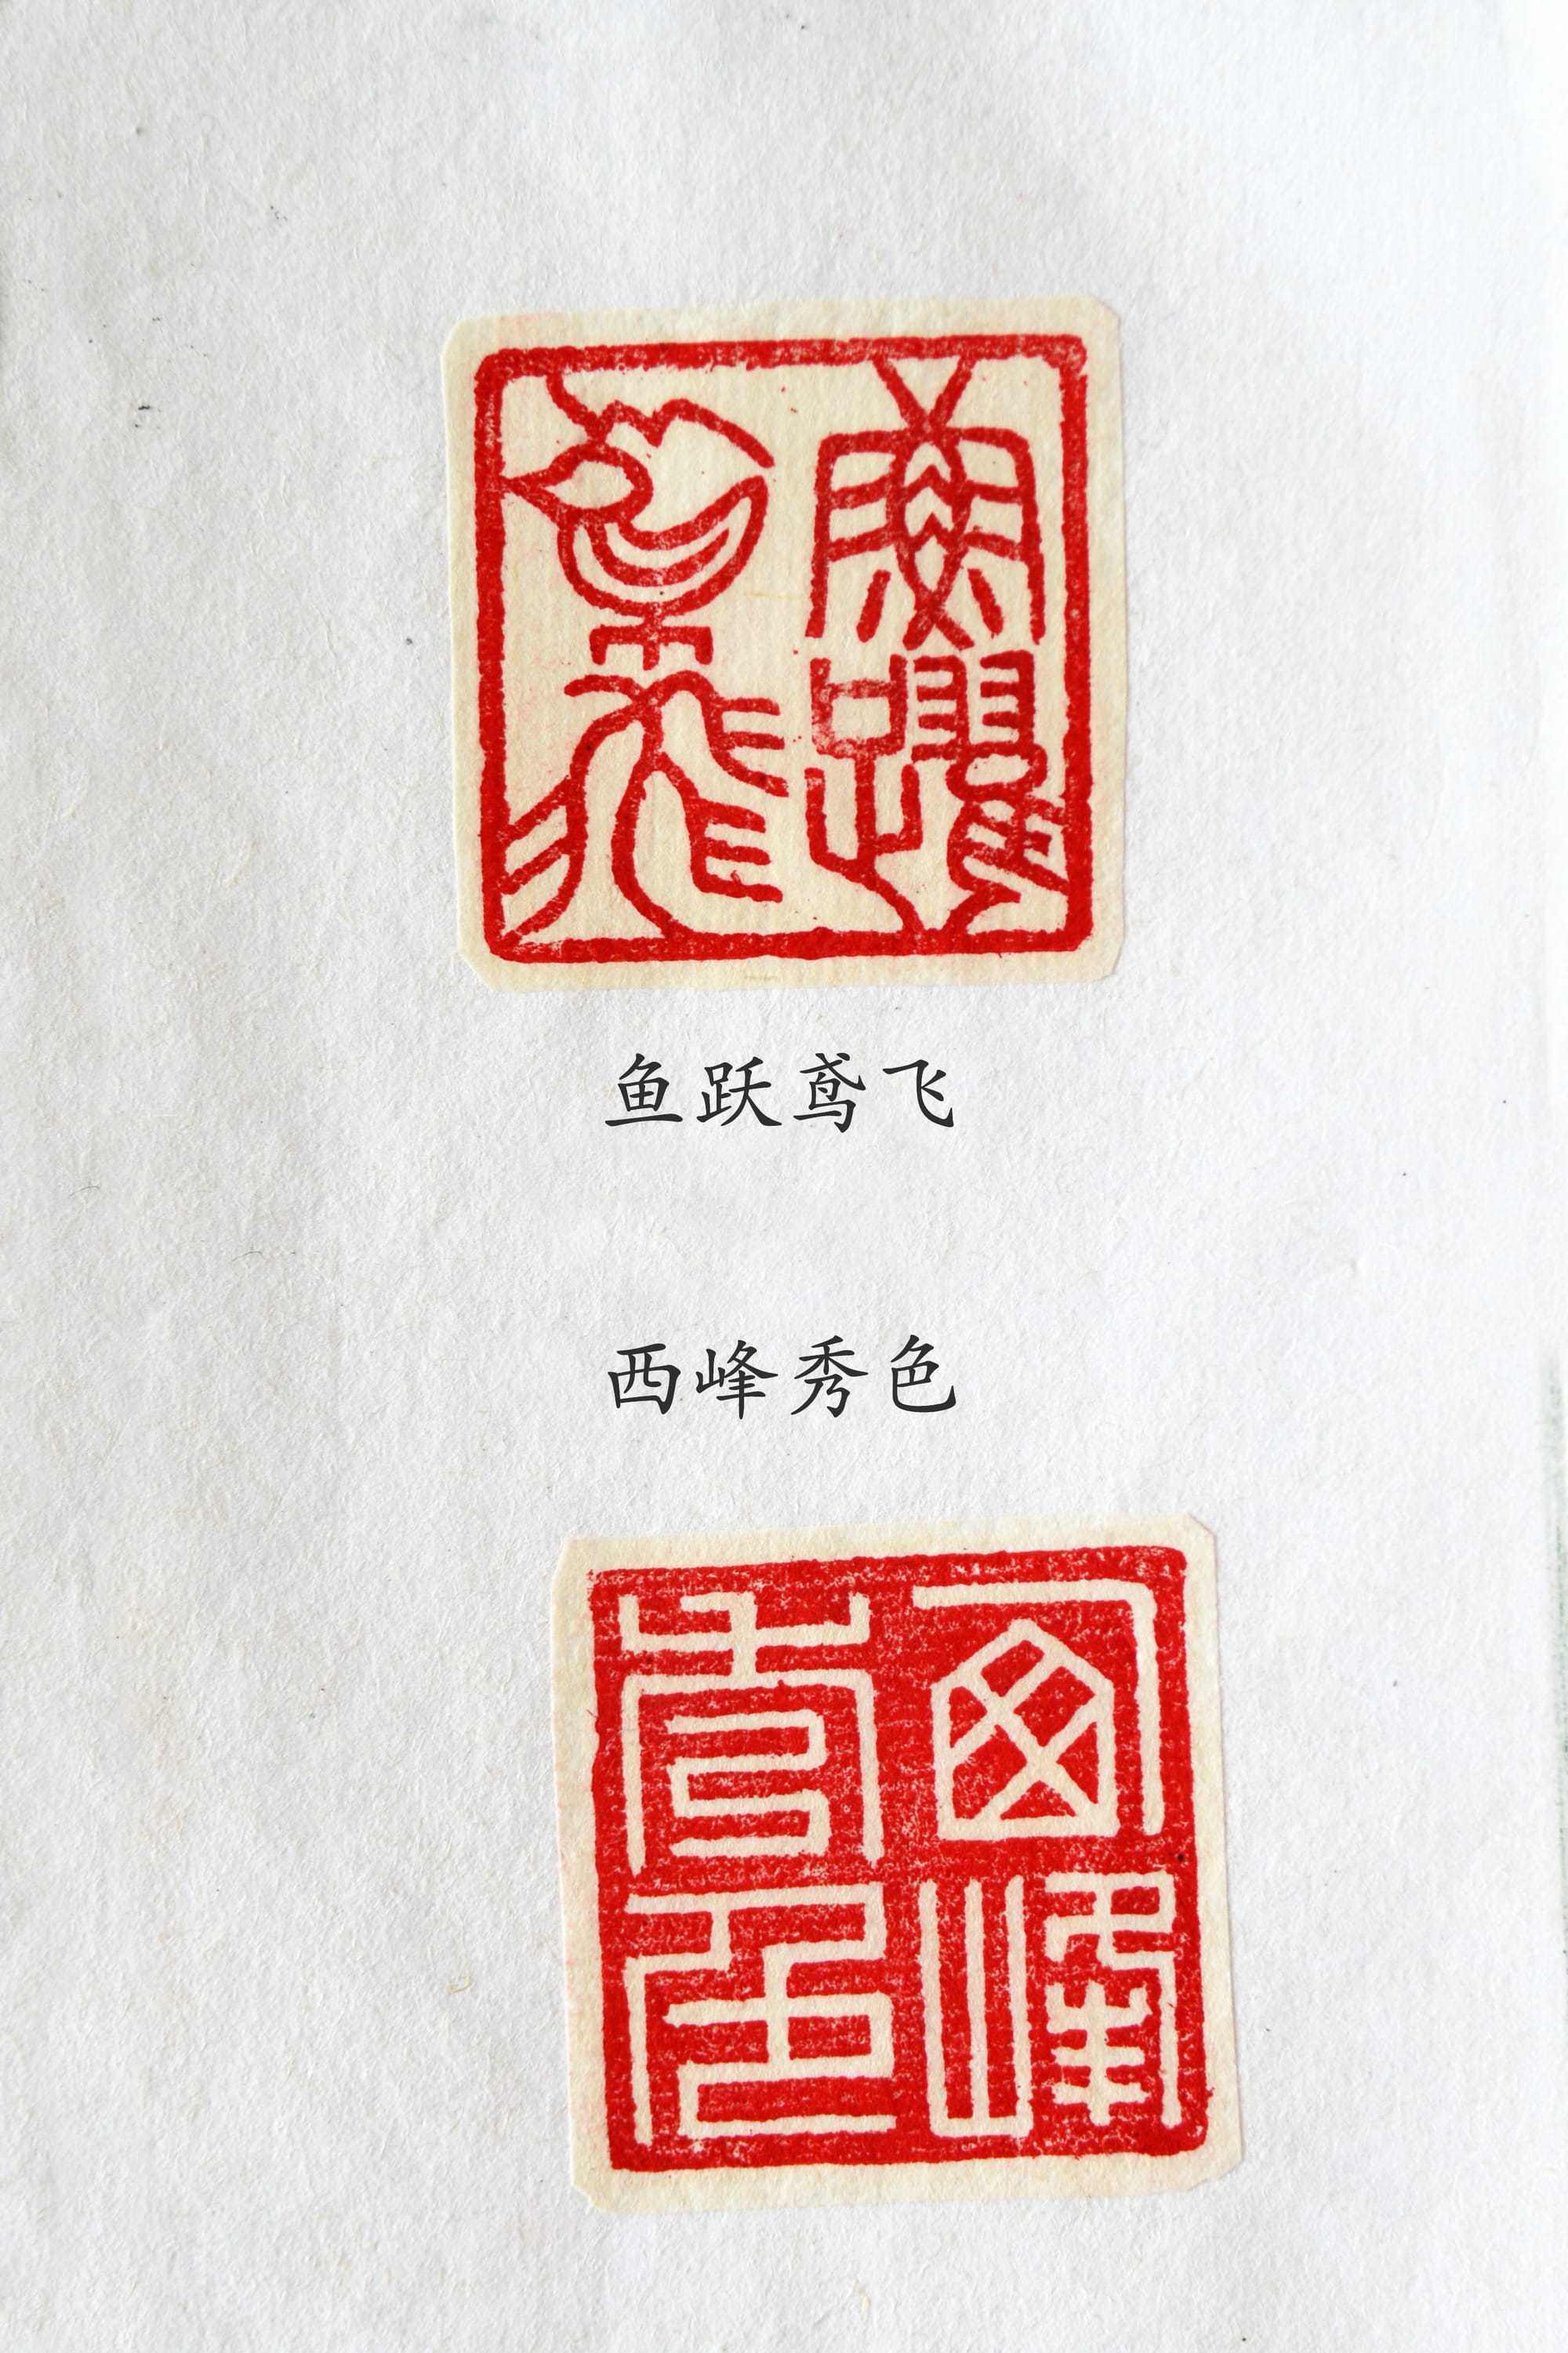 魚躍鳶飛
鱼跃鸢飞
西峰秀色
西峰秀色